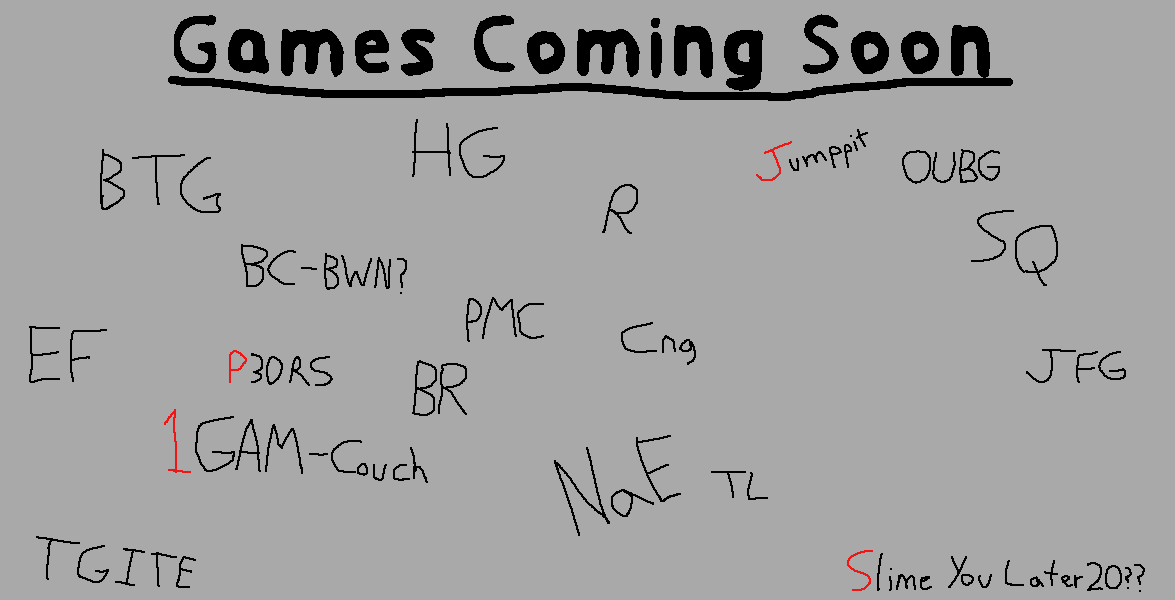 Games Coming Soon
HG
Jumppit
OUBG
BTG
R
SQ
BC-BWN?
PMC
Cng
EF
P30RS
BR
JFG
1GAM-Couch
NaE
TL
TGITE
Slime You Later20??